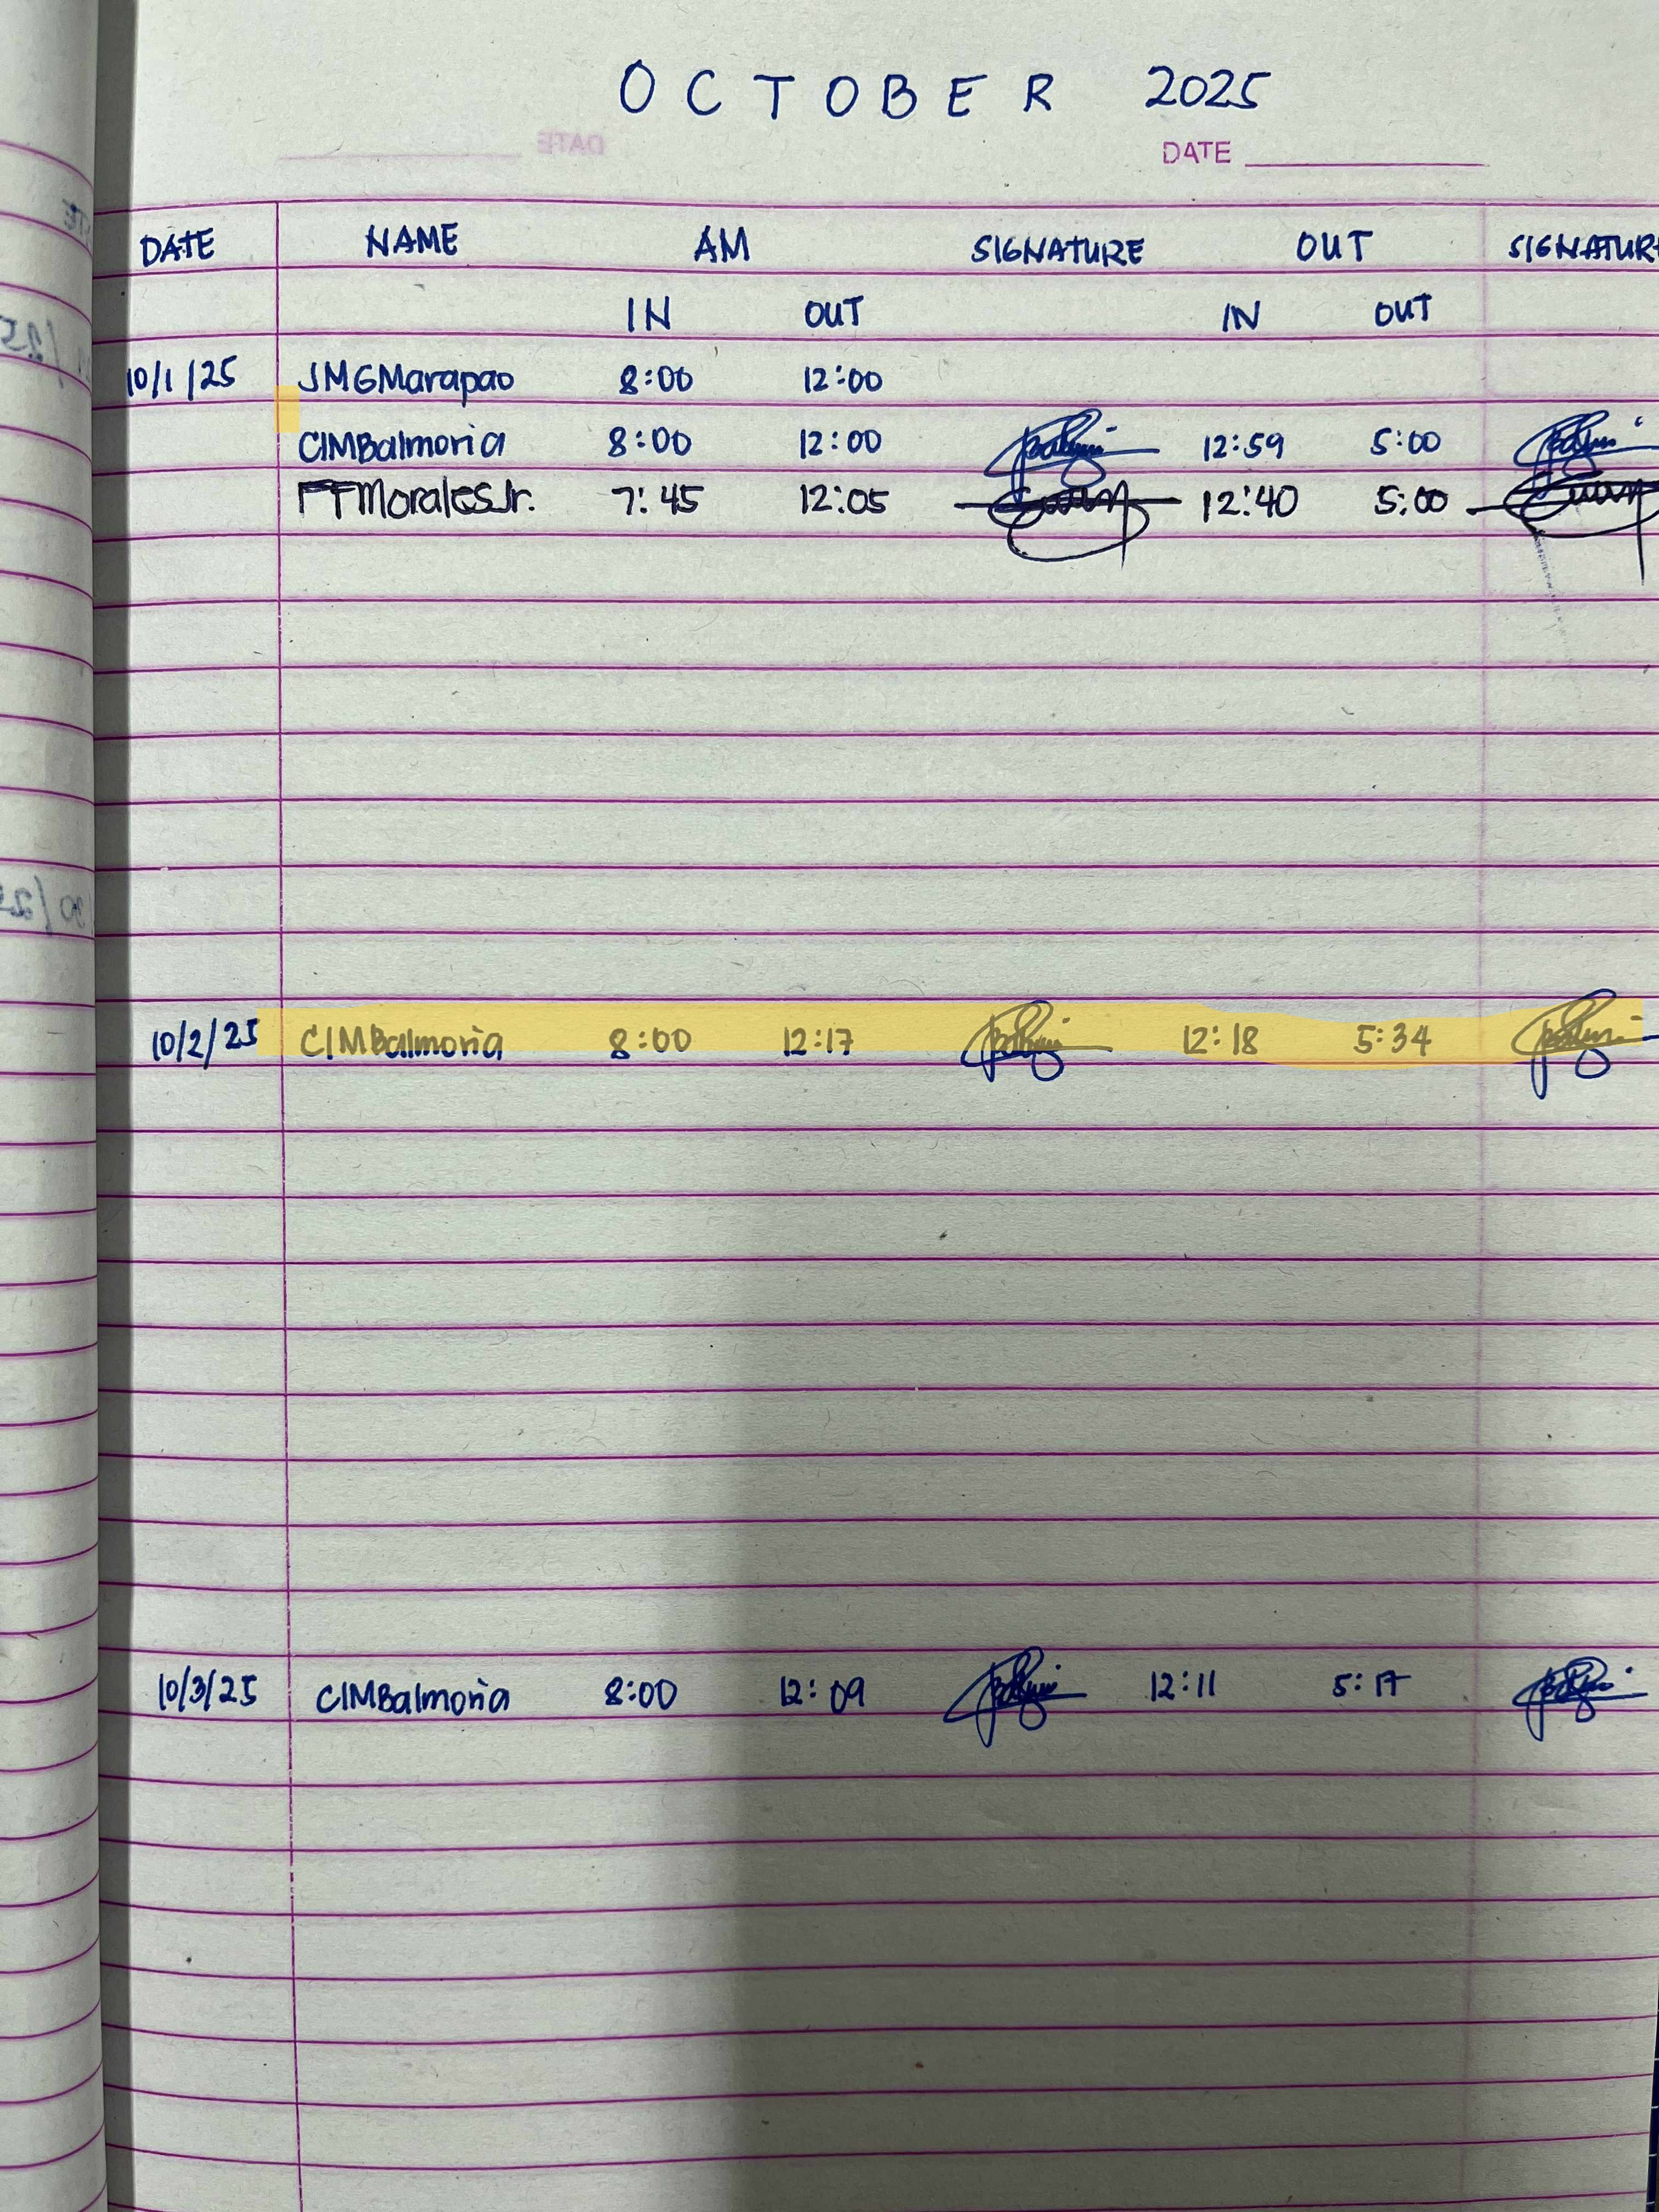 OCTOBER 2025
DATE
DATE NAME AM SIGNATURE OUT SIGNATURE
IN OUT IN OUT
10/1/25 JMGMarapao 8:00 12:00
CIMBalmoria 8:00 12:00 12:59 5:00
FTMoralesJr. 7:45 12:05 12:40 5:00
10/2/25 CIMBalmoria 8:00 12:17 12:18 5:34
10/3/25 CIMBalmoria 8:00 12:09 12:11 5:17